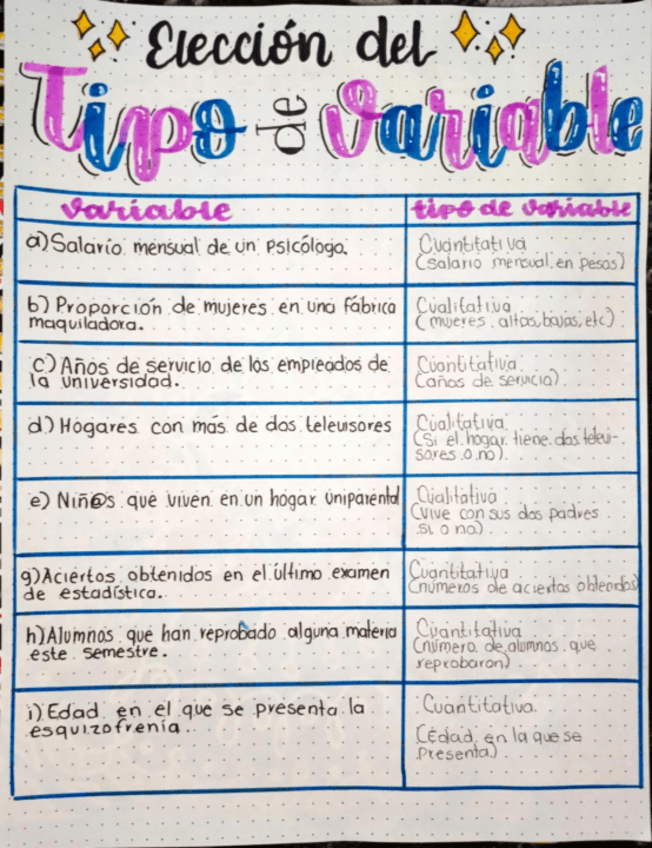 Elección del
Tipo de variable
variable
tipo de variable
a) Salario mensual de un psicólogo.
Cuantitativa
(salario mensual en pesos)
b) Proporción de mujeres en una fábrica
maquiladora.
Cualitativa
(mujeres altas, bajas, etc)
c) Años de servicio de los empleados de
la universidad.
Cuantitativa
(años de servicio)
d) Hogares con más de dos televisores
Cualitativa
(Si el hogar tiene dos televi-
sores o no)
e) Niñ@s que viven en un hogar uniparental
Cualitativa
(vive con sus dos padres
si o no)
g) Aciertos obtenidos en el último examen
de estadística.
Cuantitativa
(números de aciertos obtenidos)
h) Alumnos que han reprobado alguna materia
este semestre.
Cuantitativa
(número de alumnos que
reprobaron)
i) Edad en el que se presenta la
esquizofrenia.
Cuantitativa.
(Edad en la que se
presenta)